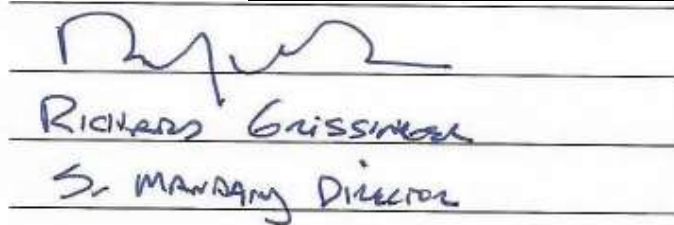 Richard Grissinger
Sr Managing Director